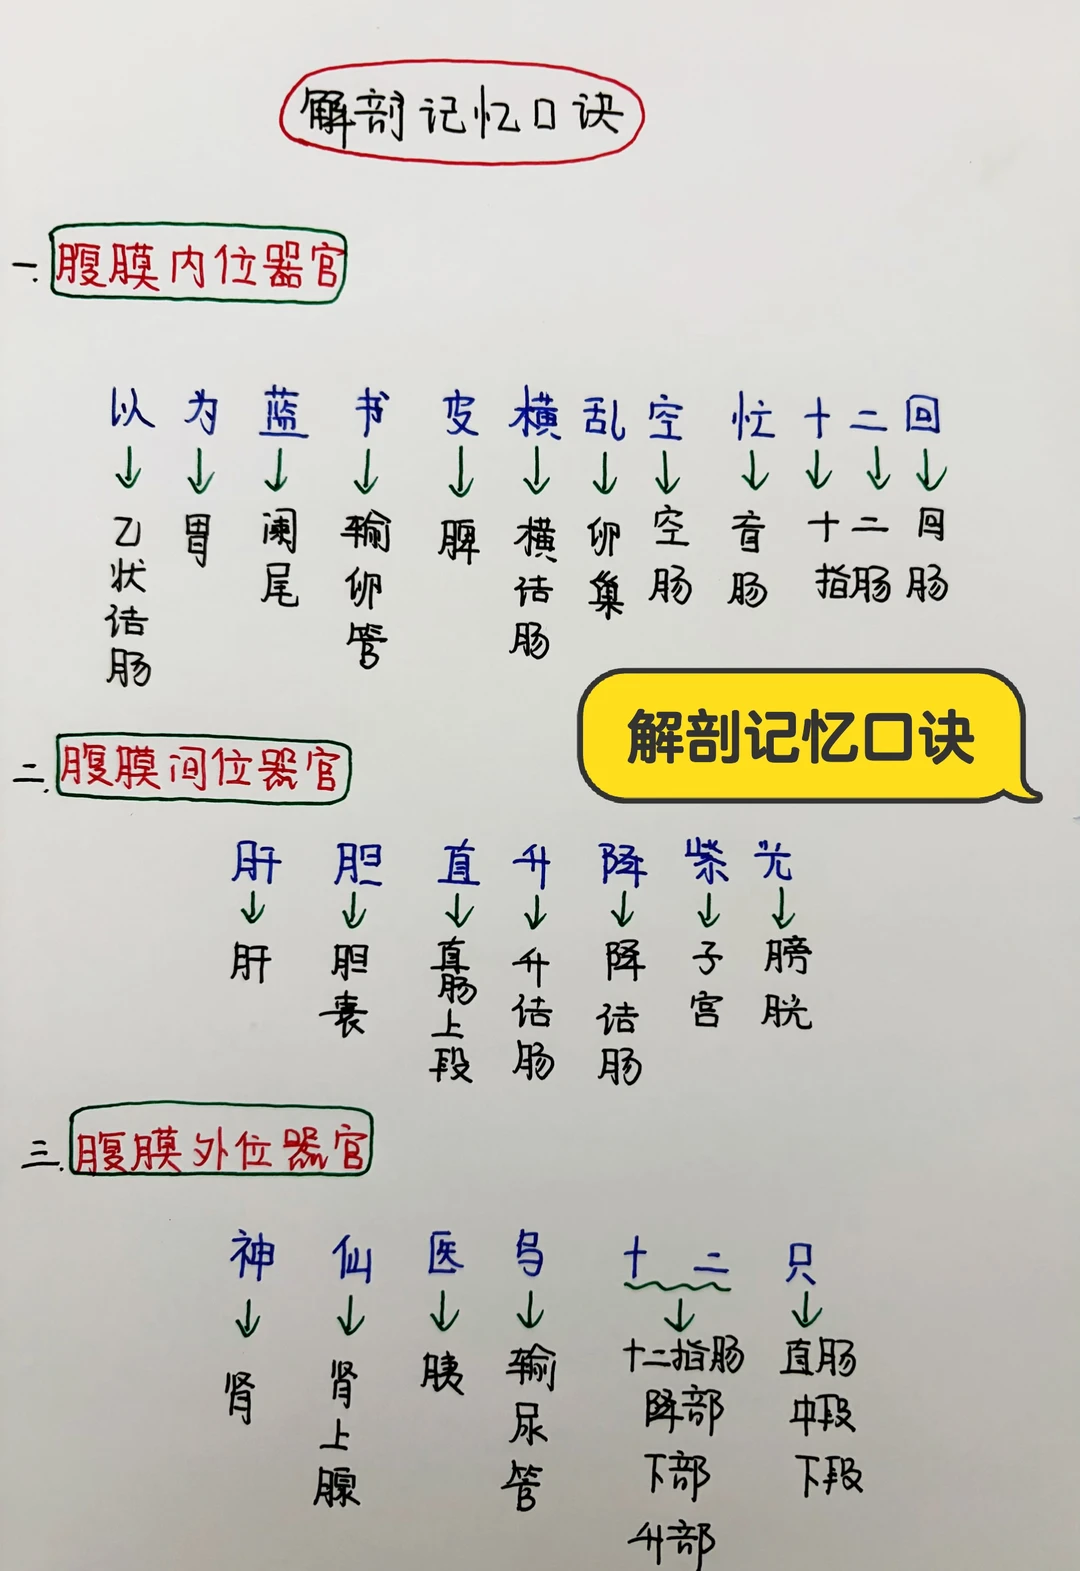 解剖记忆口诀
一.腹膜内位器官
以 为 蓝 书 皮 横 乱 空 忙 十 二 回
乙状结肠 胃 阑尾 输卵管 脾 横结肠 卵巢 空肠 盲肠 十二指肠 回肠
解剖记忆口诀
二.腹膜间位器官
肝 胆 直 升 降 紫 光
肝 胆囊 直肠上段 升结肠 降结肠 子宫 膀胱
三.腹膜外位器官
神 仙 医 鸟 十 二 只
肾 肾上腺 胰 输尿管 十二指肠降部下部升部 直肠中段下段